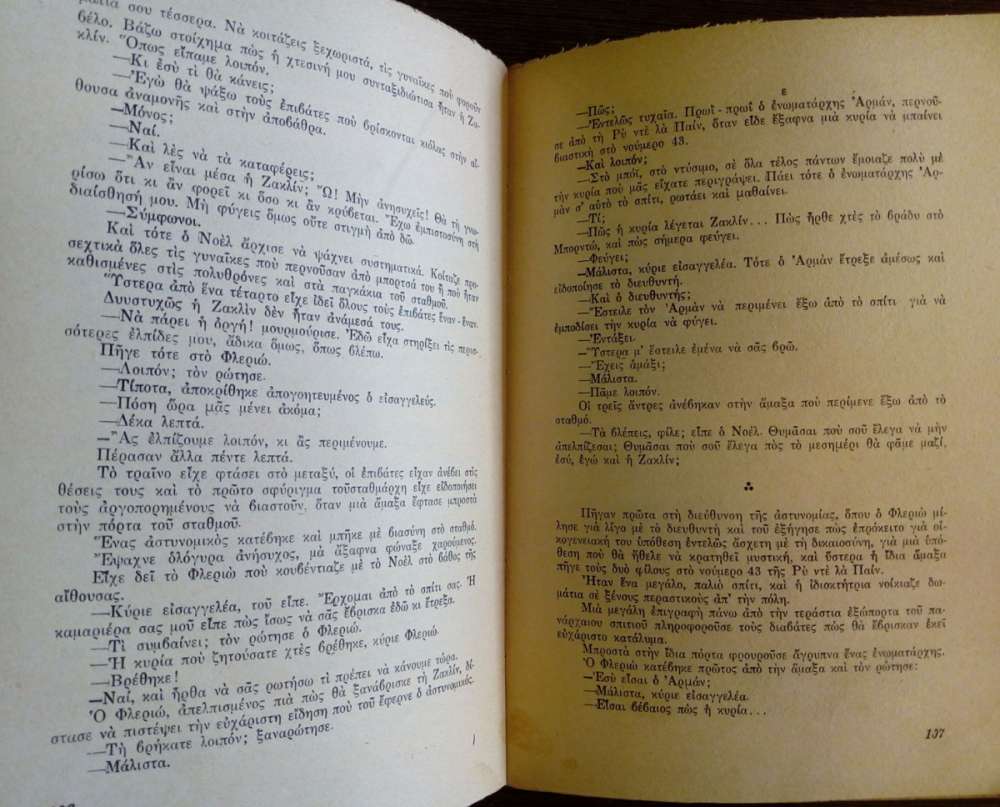 σου τέσσερα. Νὰ κοιτάζεις ξεχωριστά, τὶς γυναῖκες ποὺ φοροῦν
βέλο. Βάζω στοίχημα πὼς ἡ χτεσινή μου συνταξιδιώτισα ἦταν ἡ Ζα-
κλίν. Ὅπως εἴπαμε λοιπόν.
—Κι ἐσὺ τὶ θὰ κάνεις;
—Ἐγὼ θὰ ψάξω τοὺς ἐπιβάτες ποὺ βρίσκονται κιόλας στὴν αἴ-
θουσα ἀναμονῆς καὶ στὴν ἀποβάθρα.
—Μόνος;
—Ναί.
—Καὶ λὲς νὰ τὰ καταφέρεις;
—Ἂν εἶναι μέσα ἡ Ζακλίν; Ὤ! Μὴν ἀνησυχεῖς! Θὰ τὴ γνω-
ρίσω ὅτι κι ἂν φορεῖ κι ὅσο κι ἂν κρύβεται. Ἔχω ἐμπιστοσύνη στὴ
διαίσθησή μου. Μὴ φύγεις ὅμως οὔτε στιγμὴ ἀπὸ δῶ.
—Σύμφωνοι.
Καὶ τότε ὁ Νοὲλ ἄρχισε νὰ ψάχνει συστηματικά. Κοίταζε προ-
σεχτικὰ ὅλες τὶς γυναῖκες ποὺ περνοῦσαν ἀπὸ μπορστά του ἢ ποὺ ἦταν
καθισμένες στὶς πολυθρόνες καὶ στὰ παγκάκια τοῦ σταθμοῦ.
Ὕστερα ἀπὸ ἕνα τέταρτο εἶχε ἰδεῖ ὅλους τοὺς ἐπιβάτες ἕναν - ἕναν.
Δυυστυχῶς ἡ Ζακλὶν δὲν ἦταν ἀνάμεσά τους.
—Νὰ πάρει ἡ ὀργή! μουρμούρισε. Ἐδῶ εἶχα στηρίξει τὶς περισ-
σότερες ἐλπίδες μου, ἄδικα ὅμως, ὅπως βλέπω.
Πῆγε τότε στὸ Φλεριώ.
—Λοιπόν; τὸν ρώτησε.
—Τίποτα, ἀποκρίθηκε ἀπογοητευμένος ὁ εἰσαγγελεύς.
—Πόση ὥρα μᾶς μένει ἀκόμα;
—Δέκα λεπτά.
—Ἂς ἐλπίζουμε λοιπόν, κι ἂς περιμένουμε.
Πέρασαν ἄλλα πέντε λεπτά.
Τὸ τραῖνο εἶχε φτάσει στὸ μεταξύ, οἱ ἐπιβάτες εἶχαν ἀνέβει στὶς
θέσεις τους καὶ τὸ πρῶτο σφύριγμα τοῦσταθμάρχη εἶχε εἰδοποιήσει
τοὺς ἀργοπορημένους νὰ βιαστοῦν, ὅταν μιὰ ἅμαξα ἔφτασε μπροστὰ
στὴν πόρτα τοῦ σταθμοῦ.
Ἕνας ἀστυνομικὸς κατέβηκε καὶ μπῆκε μὲ βιασύνη στὸ σταθμό.
Ἔψαχνε ὁλόγυρα ἀνήσυχος, μὰ ἄξαφνα φώναξε χαρούμενος.
Εἶχε δεῖ τὸ Φλεριὼ ποὺ κουβέντιαζε μὲ τὸ Νοὲλ στὸ βάθος τῆς
αἴθουσας.
—Κύριε εἰσαγγελέα, τοῦ εἶπε. Ἔρχομαι ἀπὸ τὸ σπίτι σας. Ἡ
καμαριέρα σας μοῦ εἶπε πὼς ἴσως νὰ σᾶς ἔβρισκα ἐδῶ κι ἔτρεξα.
—Τὶ συμβαίνει; τὸν ρώτησε ὁ Φλεριώ.
—Ἡ κυρία ποὺ ζητούσατε χτὲς βρέθηκε, κύριε Φλεριώ.
—Βρέθηκε!
—Ναί, καὶ ἦρθα νὰ σᾶς ρωτήσω τὶ πρέπει νὰ κάνουμε τώρα.
Ὁ Φλεριώ, ἀπελπισμένος πιὰ πὼς θὰ ξανάβρισκε τὴ Ζακλίν, δί-
στασε νὰ πιστέψει τὴν εὐχάριστη εἴδηση ποὺ τοῦ ἔφερνε ὁ ἀστυνομικός.
—Τὴ βρήκατε λοιπόν; ξαναρώτησε.
—Μάλιστα.
ε
—Πῶς;
—Ἐντελῶς τυχαῖα. Πρωῒ - πρωῒ ὁ ἐνωματάρχης Ἀρμάν, περνοῦ-
σε ἀπὸ τὴ Ρὺ ντὲ λὰ Παίν, ὅταν εἶδε ἔξαφνα μιὰ κυρία νὰ μπαίνει
βιαστικὴ στὸ νούμερο 43.
—Καὶ λοιπόν;
—Στὸ μπόϊ, στὸ ντύσιμο, σὲ ὅλα τέλος πάντων ἔμοιαζε πολὺ μὲ
τὴν κυρία ποὺ μᾶς εἴχατε περιγράψει. Πάει τότε ὁ ἐνωματάρχης Ἀρ-
μὰν σ' αὐτὸ τὸ σπίτι, ρωτάει καὶ μαθαίνει.
—Τί;
—Πὼς ἡ κυρία λέγεται Ζακλίν... Πὼς ἦρθε χτὲς τὸ βράδυ στὸ
Μπορντώ, καὶ πὼς σήμερα φεύγει.
—Φεύγει;
—Μάλιστα, κύριε εἰσαγγελέα. Τότε ὁ Ἀρμὰν ἔτρεξε ἀμέσως καὶ
εἰδοποίησε τὸ διευθυντή.
—Καὶ ὁ διευθυντής;
—Ἔστειλε τὸν Ἀρμὰν νὰ περιμένει ἔξω ἀπὸ τὸ σπίτι γιὰ νὰ
ἐμποδίσει τὴν κυρία νὰ φύγει.
—Ἐντάξει.
—Ὕστερα μ' ἔστειλε ἐμένα νὰ σᾶς βρῶ.
—Ἔχεις ἁμάξι;
—Μάλιστα.
—Πᾶμε λοιπόν.
Οἱ τρεῖς ἄντρες ἀνέβηκαν στὴν ἅμαξα ποὺ περίμενε ἔξω ἀπὸ τὸ
σταθμό.
—Τὰ βλέπεις, φίλε; εἶπε ὁ Νοέλ. Θυμᾶσαι ποὺ σοῦ ἔλεγα νὰ μὴν
ἀπελπίζεσαι; Θυμᾶσαι ποὺ σοῦ ἔλεγα πὼς τὸ μεσημέρι θὰ φᾶμε μαζί,
ἐσύ, ἐγὼ καὶ ἡ Ζακλίν;
⁂
Πῆγαν πρῶτα στὴ διεύθυνση τῆς ἀστυνομίας, ὅπου ὁ Φλεριὼ μί-
λησε γιὰ λίγο μὲ τὸ διευθυντὴ καὶ τοῦ ἐξήγησε πὼς ἐπρόκειτο γιὰ οἰ-
κογενειακή του ὑπόθεση ἐντελῶς ἄσχετη μὲ τὴ δικαιοσύνη, γιὰ μιὰ ὑπό-
θεση ποὺ θὰ ἤθελε νὰ κρατηθεῖ μυστική, καὶ ὕστερα ἡ ἴδια ἅμαξα
πῆγε τοὺς δυὸ φίλους στὸ νούμερο 43 τῆς Ρὺ ντὲ λὰ Παίν.
Ἦταν ἕνα μεγάλο, παλιὸ σπίτι, καὶ ἡ ἰδιοκτήτρια νοίκιαζε δω-
μάτια σὲ ξένους περαστικοὺς ἀπ' τὴν πόλη.
Μιὰ μεγάλη ἐπιγραφὴ πάνω ἀπὸ τὴν τεράστια ἐξώπορτα τοῦ πα-
νάρχαιου σπιτιοῦ πληροφοροῦσε τοὺς διαβάτες πὼς θὰ ἔβρισκαν ἐκεῖ
εὐχάριστο κατάλυμα.
Μπροστὰ στὴν ἴδια πόρτα φρουροῦσε ἄγρυπνα ἕνας ἐνωματάρχης.
Ὁ Φλεριὼ κατέβηκε πρῶτος ἀπὸ τὴν ἅμαξα καὶ τὸν ρώτησε:
—Ἐσὺ εἶσαι ὁ Ἀρμάν;
—Μάλιστα, κύριε εἰσαγγελέα.
—Εἶσαι βέβαιος πὼς ἡ κυρία...
107